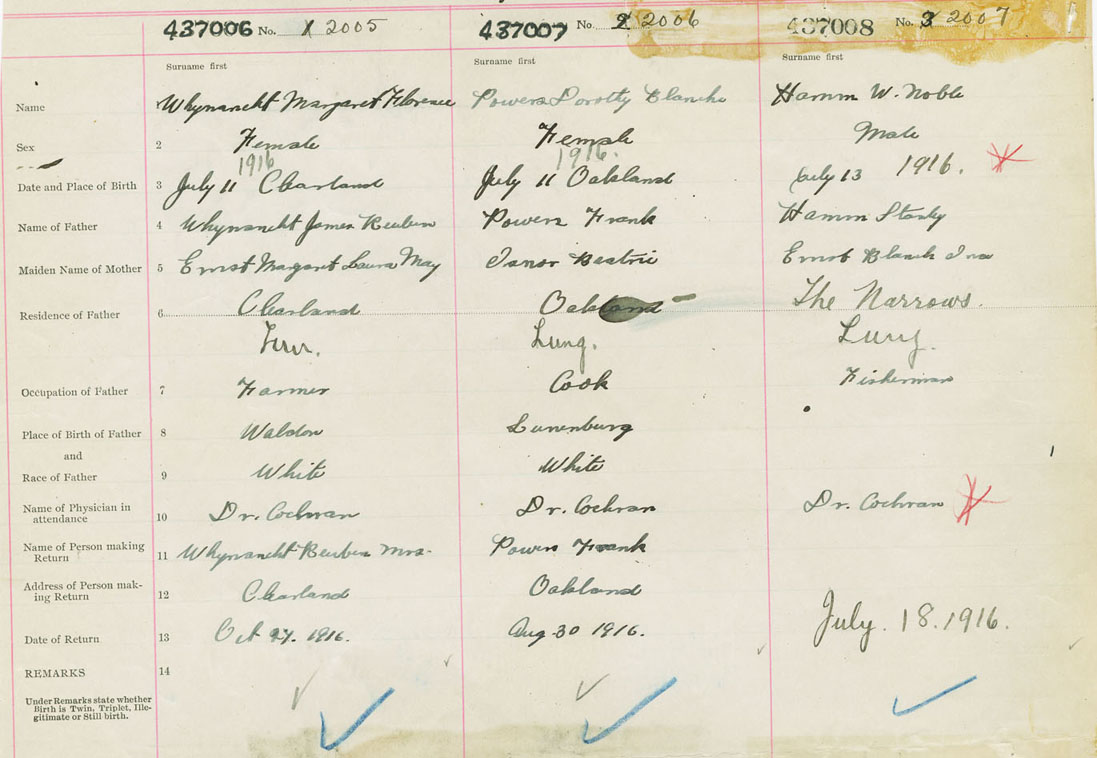 437006 No. 1 2005 437007 No. 2 2006 437008 No. 3 2007
Surname first Surname first Surname first
Name Whynancht Margaret Florence Powers Dorothy Blanche Hamm W. Noble
Sex 2 Female Female Male
1916 1916. 1916.
Date and Place of Birth 3 July 11 Clearland July 11 Oakland July 13
Name of Father 4 Whynancht James Reuben Powers Frank Hamm Stanly
Maiden Name of Mother 5 Ernst Margaret Laura May Beatrie Ernst Blanch Ina
Residence of Father 6 Clearland Oakland The Narrows.
Lun. Lung. Lung.
Occupation of Father 7 Farmer Cook Fisherman
Place of Birth of Father 8 Waldon Lunenburg
and
Race of Father 9 White White
Name of Physician in
attendance 10 Dr. Cochran Dr. Cochran Dr. Cochran
Name of Person making
Return 11 Whynancht Reuben Mrs. Powers Frank
Address of Person mak-
ing Return 12 Clearland Oakland
Date of Return 13 Oct 27. 1916. Aug 30 1916. July. 18. 1916.
REMARKS 14
Under Remarks state whether
Birth is Twin, Triplet, Ille-
gitimate or Still birth.